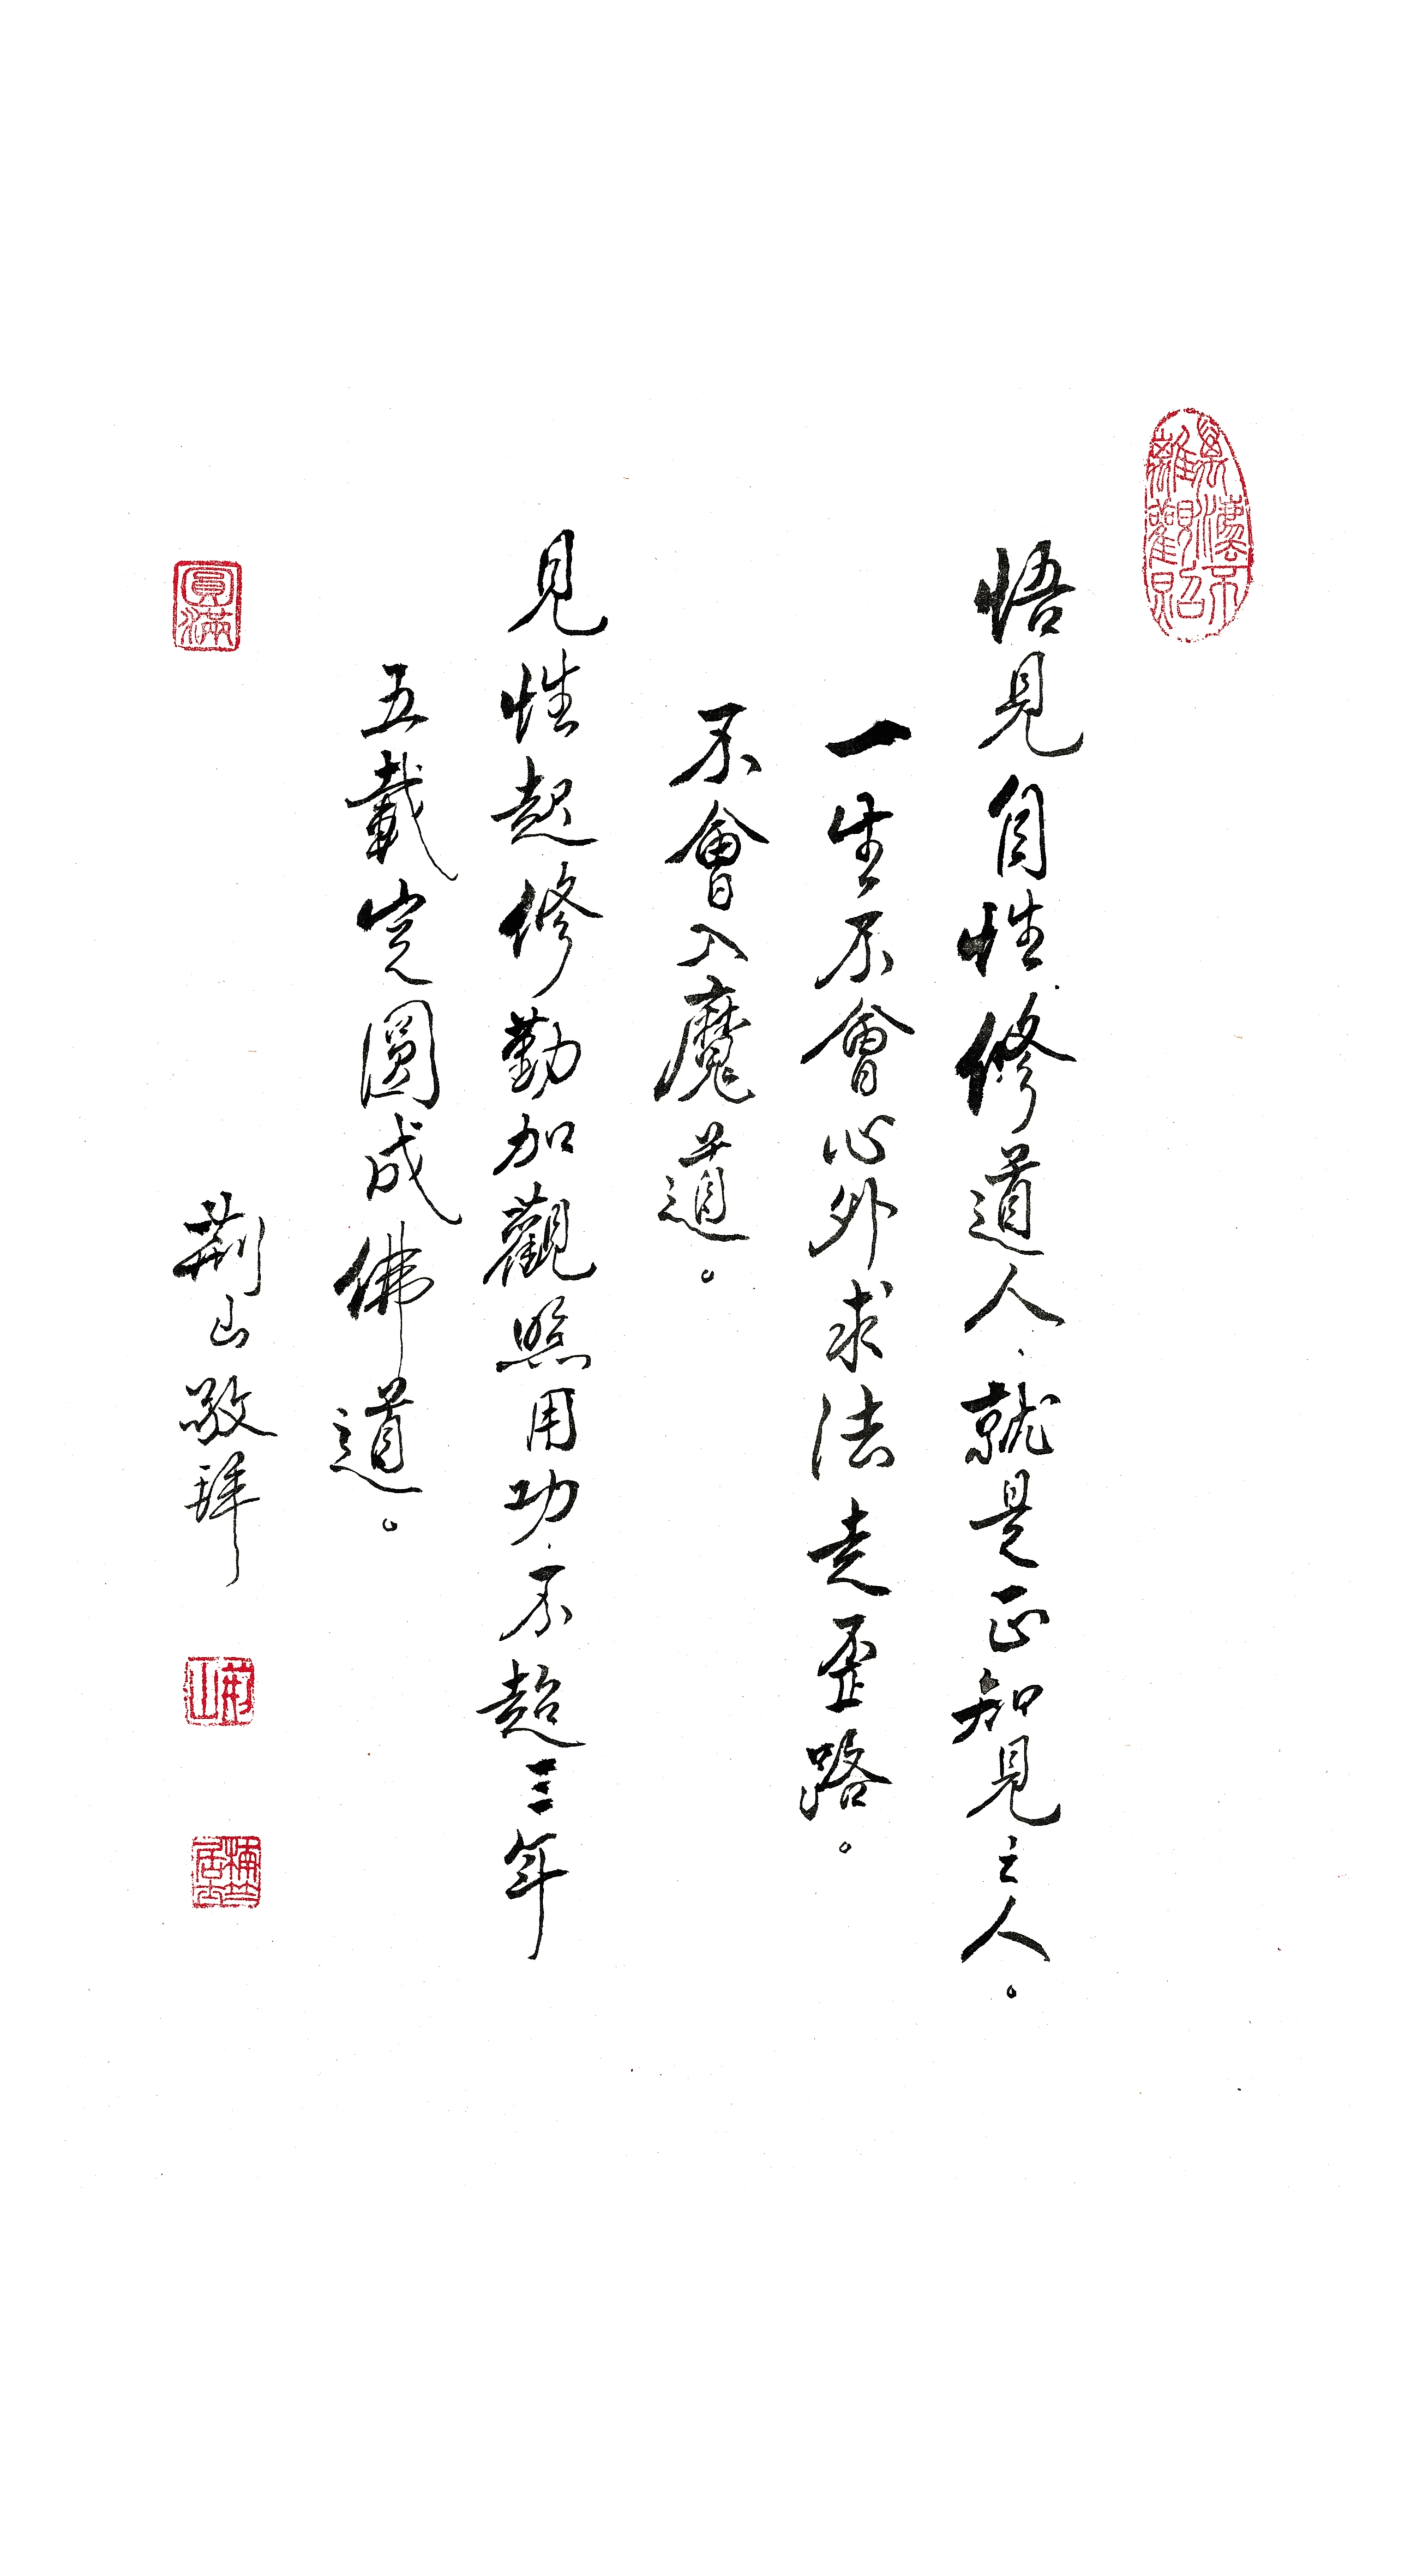 悟見自性修道人，就是正知見之人。
一生不會心外求法走歪路。
不會入魔道。
見性起修勤加觀照用功，不超三年
五載定圓成佛道。
荆山敬拜
圓滿
荆山